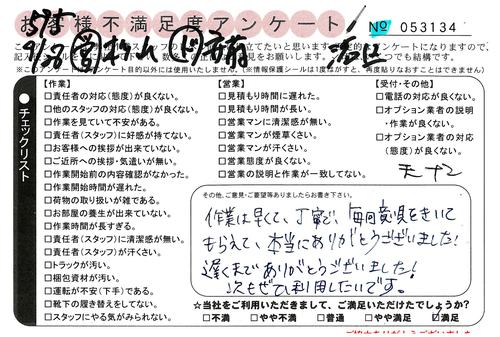 お客様不満足度アンケート
No 053134
●チェックリスト
【作業】
□責任者の対応(態度)が良くない。
□他のスタッフの対応(態度)が良くない。
□作業を見ていて不安がある。
□責任者(スタッフ)に好感が持てない。
□お客様への挨拶が出来ていない。
□ご近所への挨拶・気遣いが無い。
□作業開始前の内容確認がなかった。
□作業開始時間が遅れた。
□荷物の取り扱いが雑である。
□お部屋の養生が出来ていない。
□作業時間が長すぎる。
□責任者(スタッフ)に清潔感が無い。
□責任者(スタッフ)が汗くさい。
□トラックが汚い。
□梱包資材が汚い。
□運転が不安(下手)である。
□靴下の履き替えをしてない。
□スタッフにやる気がみられない。
【営業】
□見積もり時間に遅れた。
□見積もり時間が長い。
□営業マンに清潔感が無い。
□営業マンが煙草くさい。
□営業マンが汗くさい。
□営業態度が良くない。
□営業の説明と作業が一致してない。
【受付・その他】
□電話の対応が良くない。
□オプション業者の説明
・作業が良くない。
□オプション業者の対応
(態度)が良くない。
その他、ご意見・ご要望等ありましたらお書き下さい。
作業は早くて、丁寧で、毎回意見をきいて
もらえて、本当にありがとうございました!
遅くまでありがとうございました!
次もぜひ利用したいです。
☆当社をご利用いただきまして、ご満足いただけたでしょうか?
□不満 □やや不満 □普通 □やや満足 ☑満足